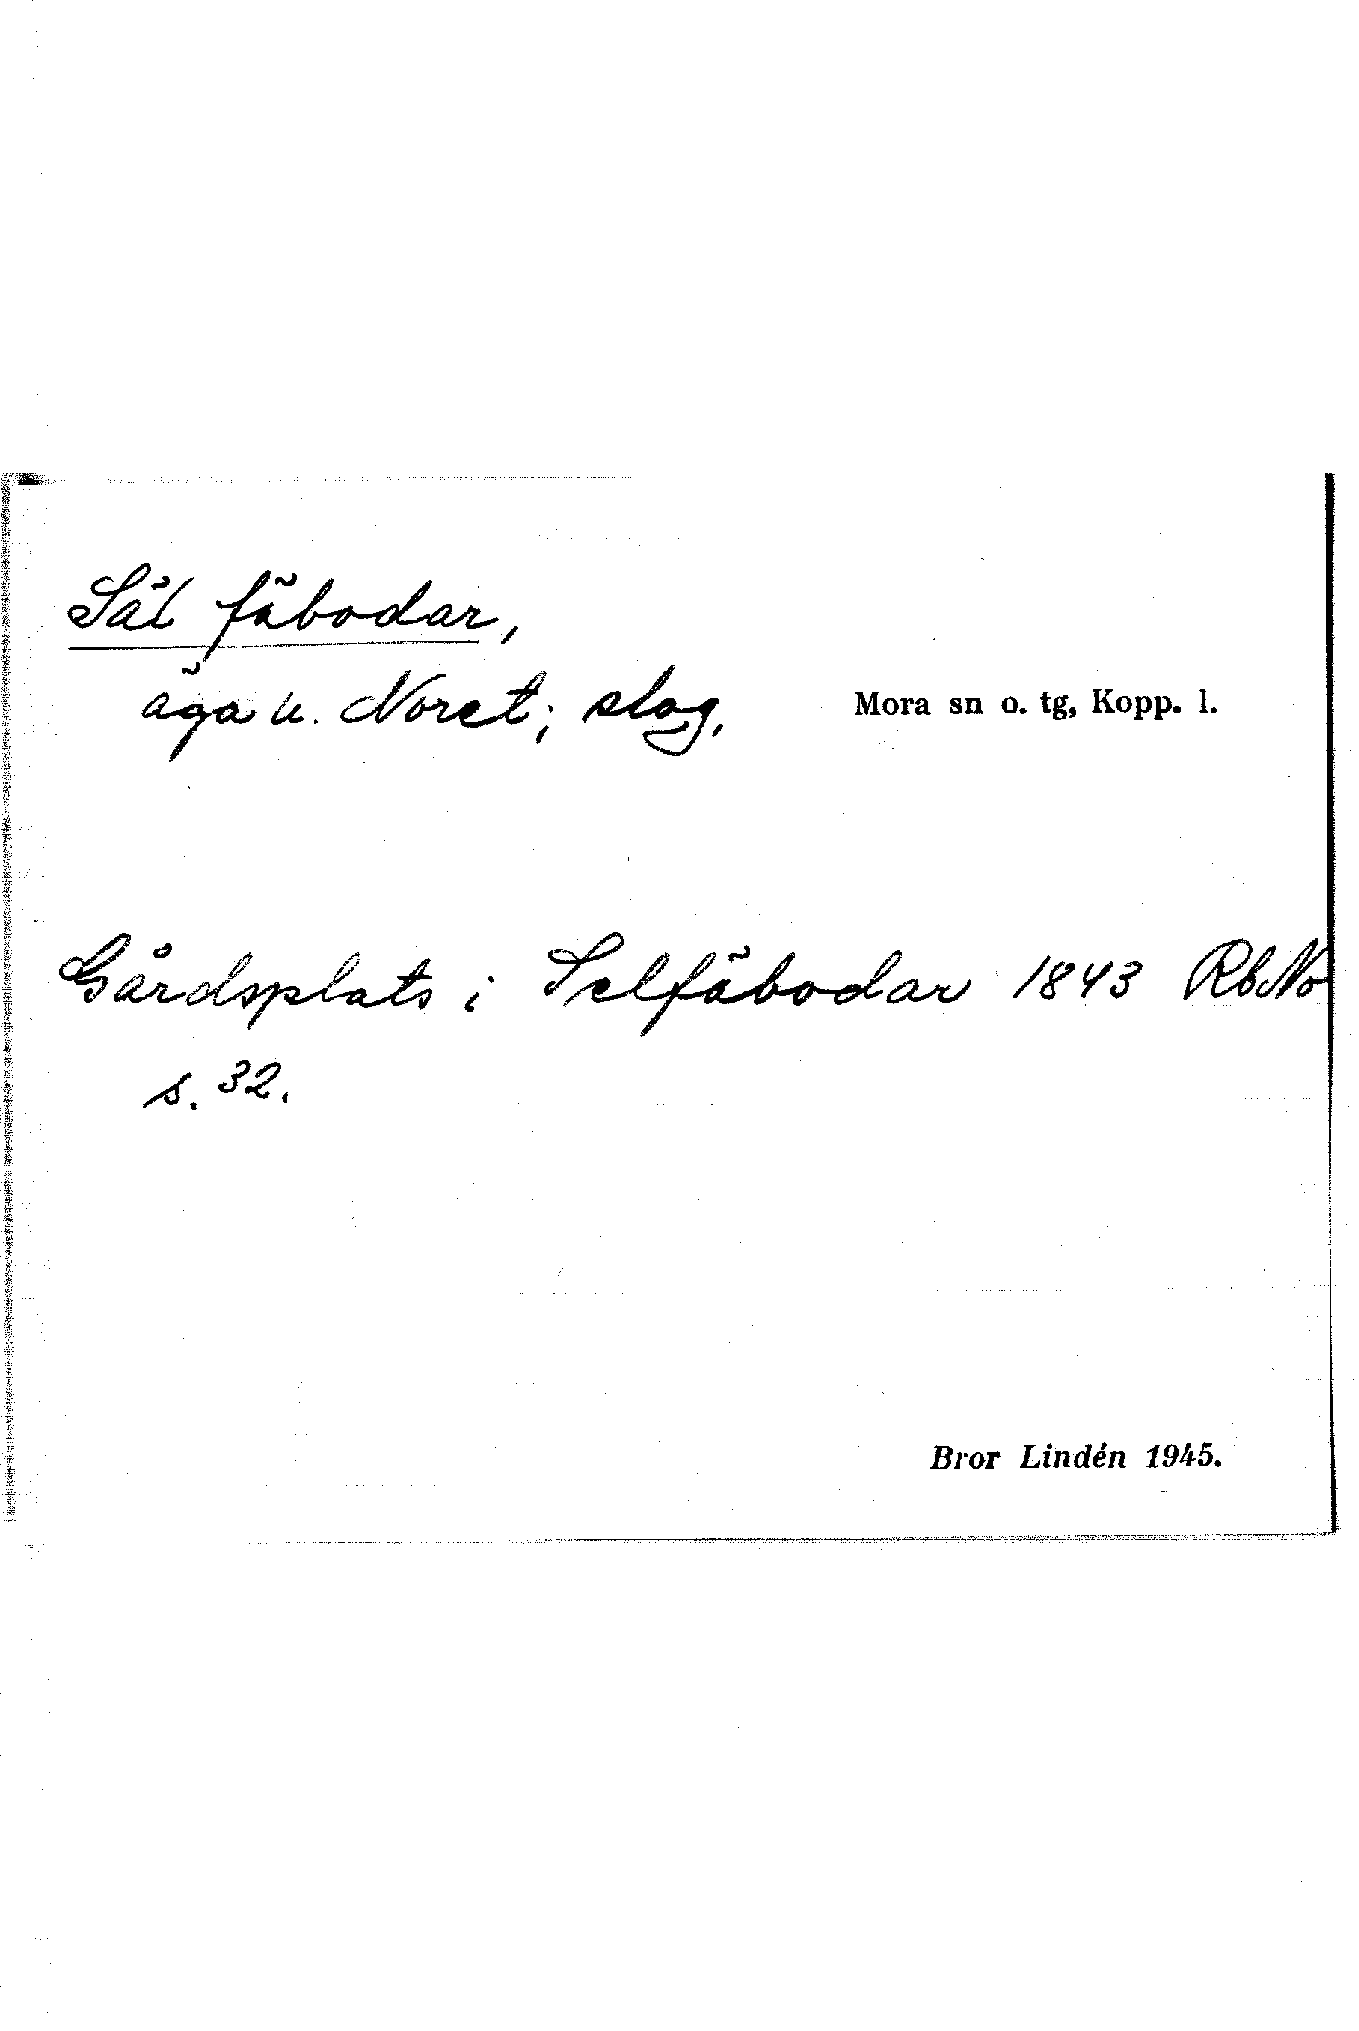 Säl fäbodar,
äga u. Noret; slog. Mora sn o. tg, Kopp. l.
Gårdsplats i Selfäbodar 1843 RbNo
s. 32.
Bror Lindén 1945.